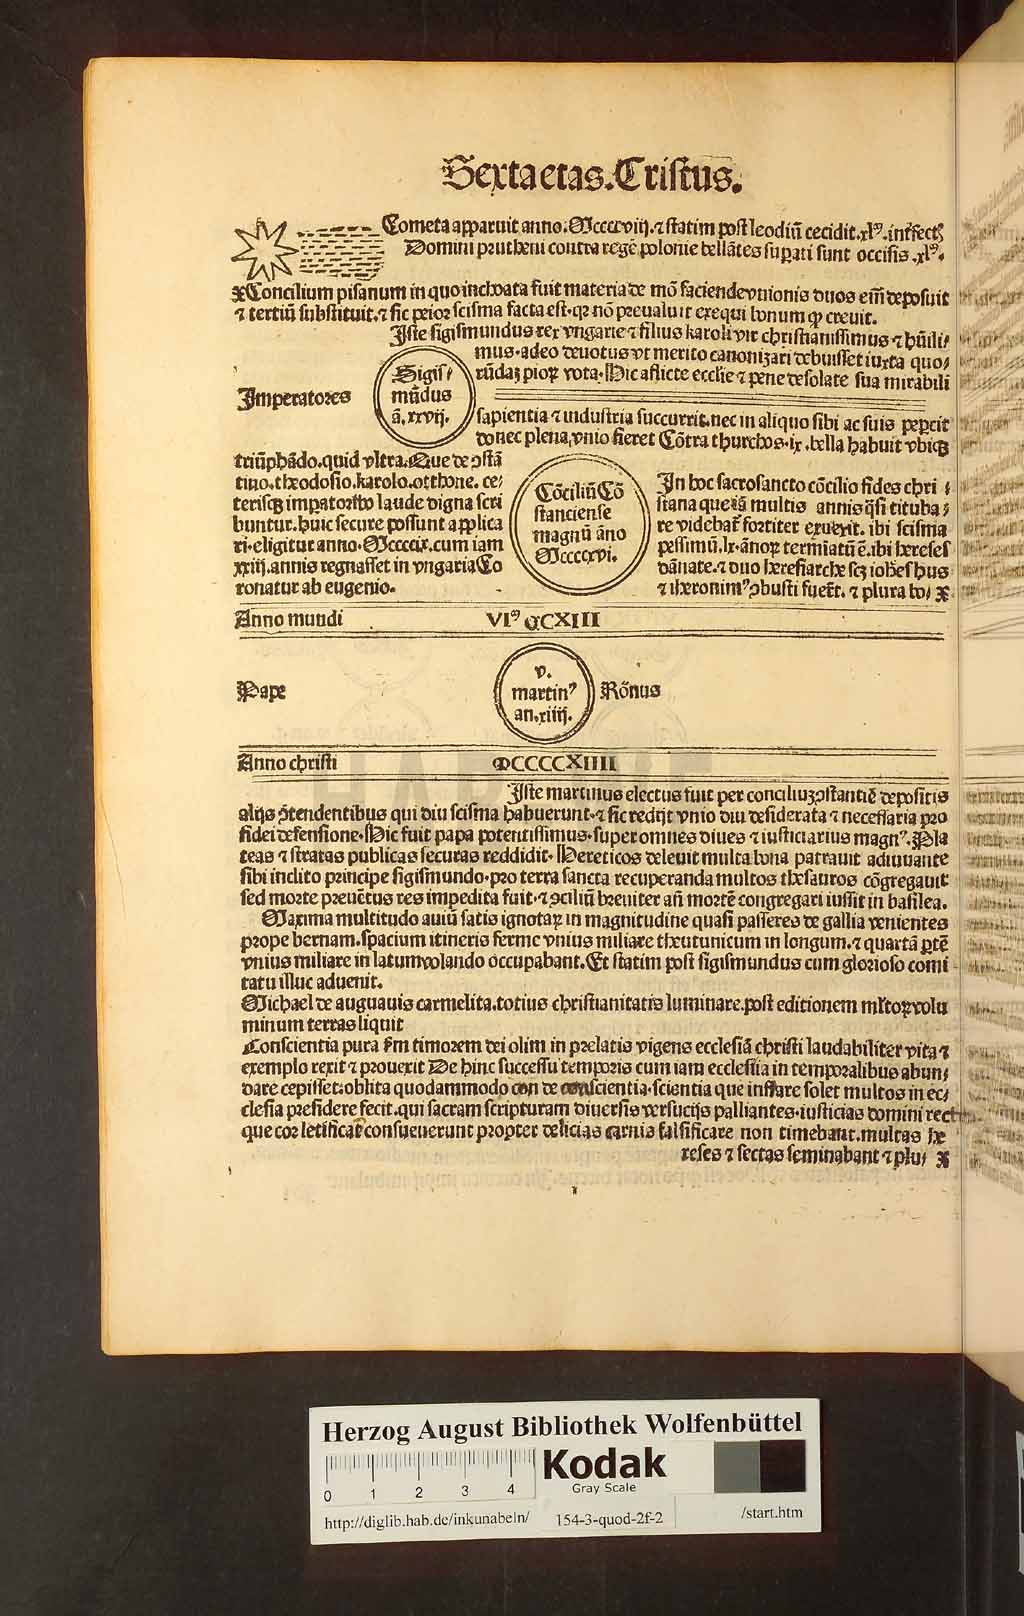 Sexta etas. Cristus.
Cometa apparuit anno. Mccccviij. ⁊ statim post leodiū cecidit. xlꝰ. interfectꝭ
Domini prutheni contra regē polonie bellātes suꝑati sunt occisis .xlꝰ.
Concilium pisanum in quo inchoata fuit materia de mō faciende vnionis duos em̄ deposuit
⁊ tertiū substituit. ⁊ sic peior scisma facta est. qꝛ nō preualuit exequi bonum ꝙ creuit.
Iste sigismundus rex vngarie ⁊ filius karoli vir christianissimus ⁊ hūili⸗
mus. adeo deuotus vt merito canonizari debuisset iuxta quo⸗
rūdaȝ pioꝝ vota. Hic aflicte ecclie ⁊ pene desolate sua mirabili
Imperatores
Sigis⸗
mūdus
ā. xxvij.
sapientia ⁊ industria succurrit. nec in aliquo sibi ac suis peꝑcit
donec plena vnio fieret Cōtra thurchos. ix. bella habuit vbiqꝫ
triūphādo. quid vltra. Que de ɔstā
tino. theodosio. karolo. otthone. ce⸗
terisqꝫ imꝑatoribꝰ laude digna scri
buntur. huic secure possunt applica
ri. eligitur anno. Mccccix. cum iam
xxiij. annis regnasset in vngaria Co
ronatur ab eugenio.
Cōciliū Cō
stanciense
magnū āno
Mccccxvi.
In hoc sacrosancto cōcilio fides chri⸗
stana que iā multis annis q̄si tituba⸗
re videbat᷑ fortiter exuexit. ibi scisma
pessimū. lx. ānoꝝ termiatū ē. ibi hereses
dānate. ⁊ duo heresiarche scꝫ iohēs hus
⁊ iheronimꝰ ɔbusti fuer̄t. ⁊ plura bo⸗
Anno mundi VIꝰ DCXIII
Pape
v.
martinꝰ
an. xiiij.
Rōnus
Anno christi MCCCCXIIII
Iste martinus electus fuit per conciliuȝ ɔstantiē depositis
alijs ɔ̄tendentibus qui diu scisma habuerunt. ⁊ sic redijt vnio diu desiderata ⁊ necessaria pro
fidei defensione. Hic fuit papa potentissimus. super omnes diues ⁊ iusticiarius magnꝰ. Pla
teas ⁊ stratas publicas securas reddidit. Hereticos deleuit multa bona patrauit adiuuante
sibi inclito principe sigismundo. pro terra sancta recuperanda multos thesauros cōgregauit
sed morte preuētus res impedita fuit. ⁊ ɔciliū breuiter añ mortē congregari iussit in basilea.
Maxima multitudo auiū satis ignotaꝝ in magnitudine quasi passeres de gallia venientes
prope bernam. spacium itineris ferme vnius miliare theutunicum in longum. ⁊ quartā ꝑtē
vnius miliare in latum volando occupabant. Et statim post sigismundus cum glorioso comi
tatu illuc aduenit.
Michael de auguauis carmelita. totius christianitatis luminare. post editionem ml̄toꝝ volu
minum terras liquit
Conscientia pura ſm timorem dei olim in prelatis vigens ecclesiā christi laudabiliter vita ⁊
exemplo rexit ⁊ prouexit De hinc successu temporis cum iam ecclesiia in temporalibus abun⸗
dare cepisset: oblita quodammodo con de conscientia. scientia que inflare solet multos in ec⸗
clesia presidere fecit. qui sacram scripturam diuersis versucijs palliantes. iusticias domini rect
que cor letificāt consueuerunt propter delicias carnis falsificare non timebant. multas he
reses ⁊ sectas seminabant ⁊ plu⸗
HAB WF
Herzog August Bibliothek Wolfenbüttel
0 1 2 3 4
Kodak
Gray Scale
http://diglib.hab.de/inkunabeln/ 154-3-quod-2f-2 /start.htm